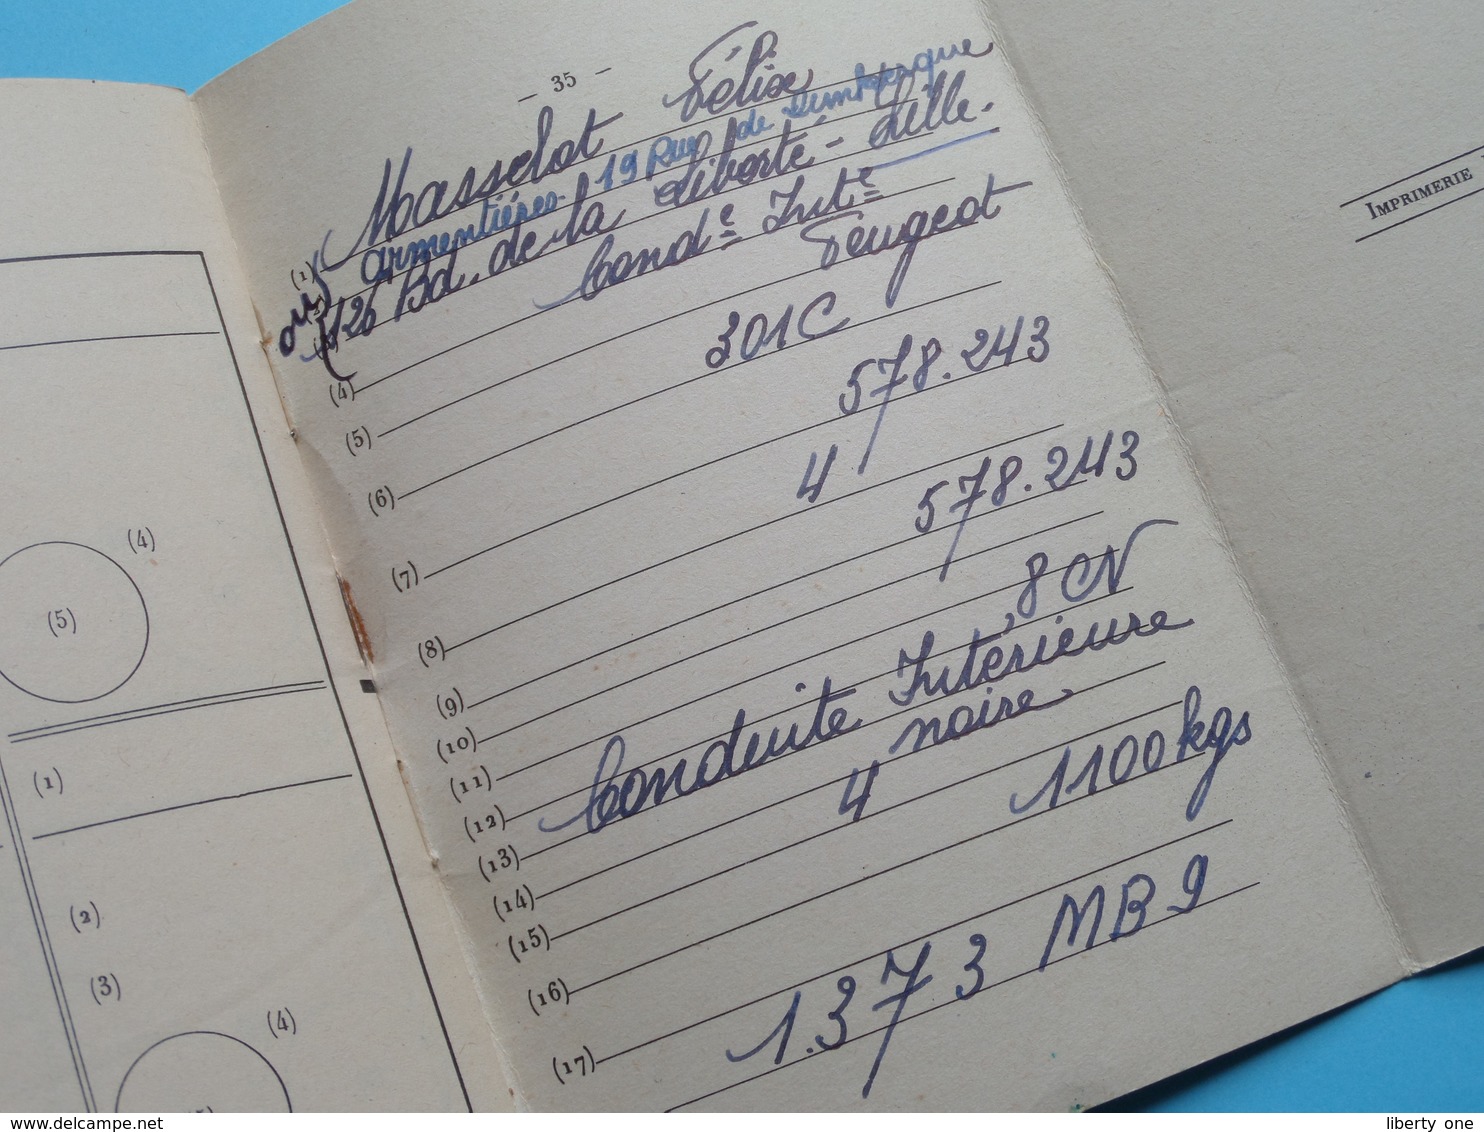 — 35 —
Masselot Félix
armentières. 19 Rue de Dunkerque
(1)
ou
126 Bd. de la Liberté - Lille.
Condᵉ Intᵉ
(4) Peugeot
(5) 301C
(6) 578.243
(7) 4
(8) 578.243
(9)
(10)
(11) 8 CV
(12) Conduite Intérieure
(13) noire
(14) 4
(15) 1100 kgs
(16)
(17) 1.373 MB9
IMPRIMERIE
(4)
(5)
(1)
(2)
(3)
(4)
liberty one